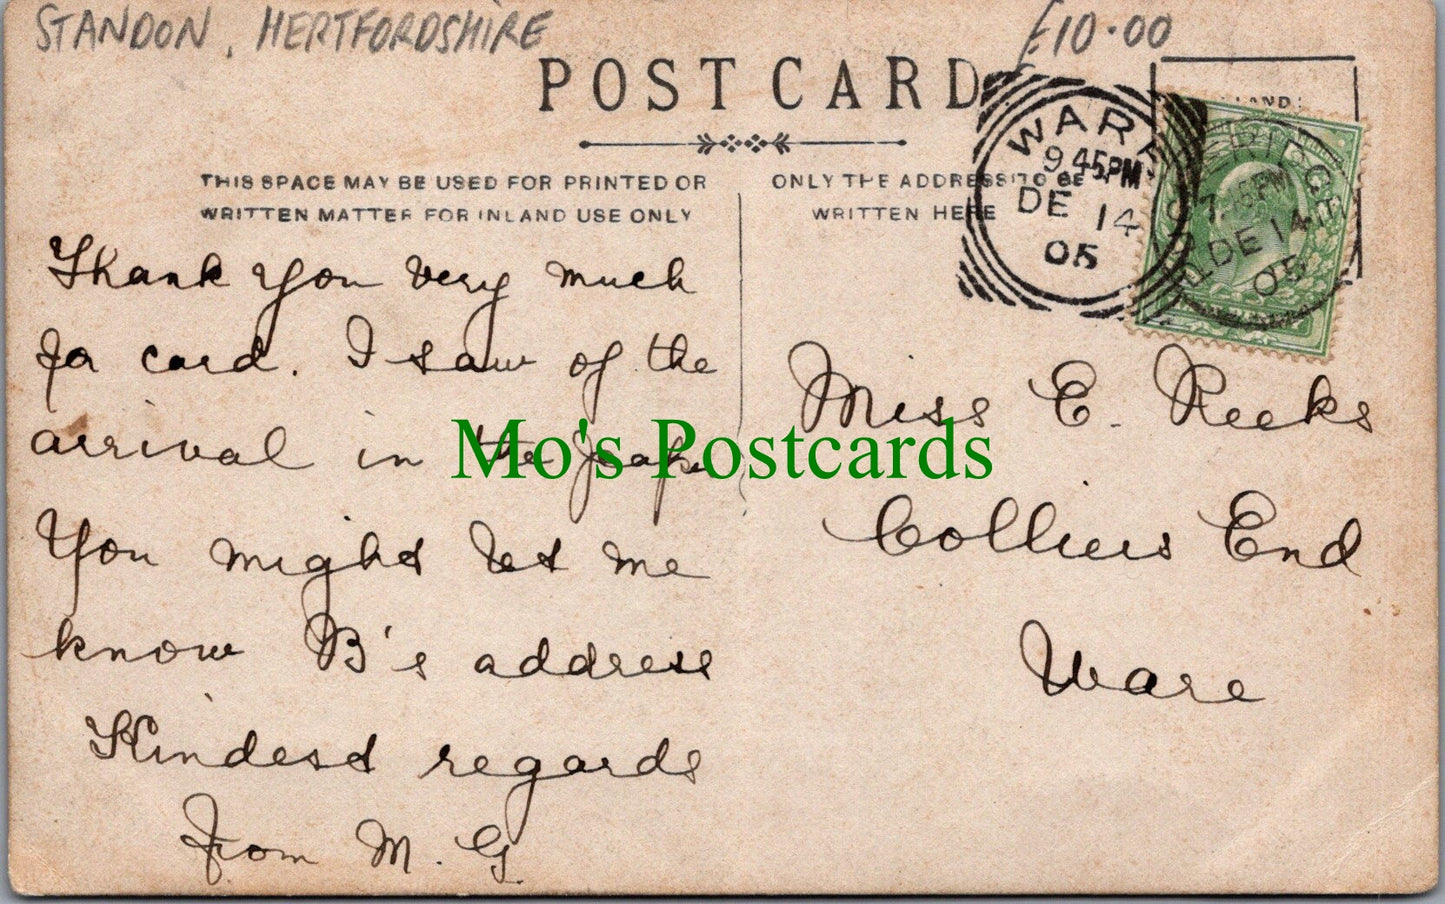 STANDON, HERTFORDSHIRE
£10.00
POST CARD
THIS SPACE MAY BE USED FOR PRINTED OR
WRITTEN MATTER FOR INLAND USE ONLY
ONLY THE ADDRESS TO BE
WRITTEN HERE
WARE
9 45PM
DE 14
05
7.15PM
DE 14
05
Thank you very much
for card. I saw of the
arrival in the paper
You might let me
know B's address
Kindest regards
from M. G.
Miss E. Reeks
Colliers End
Ware
Mo's Postcards